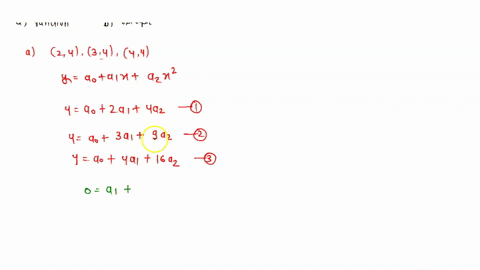 a) (2,4), (3,4), (4,4)
y = a₀ + a₁x + a₂x²
4 = a₀ + 2a₁ + 4a₂ — ①
4 = a₀ + 3a₁ + 9a₂ — ②
4 = a₀ + 4a₁ + 16a₂ — ③
0 = a₁ +